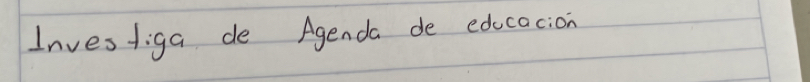 Investiga de Agenda de educación